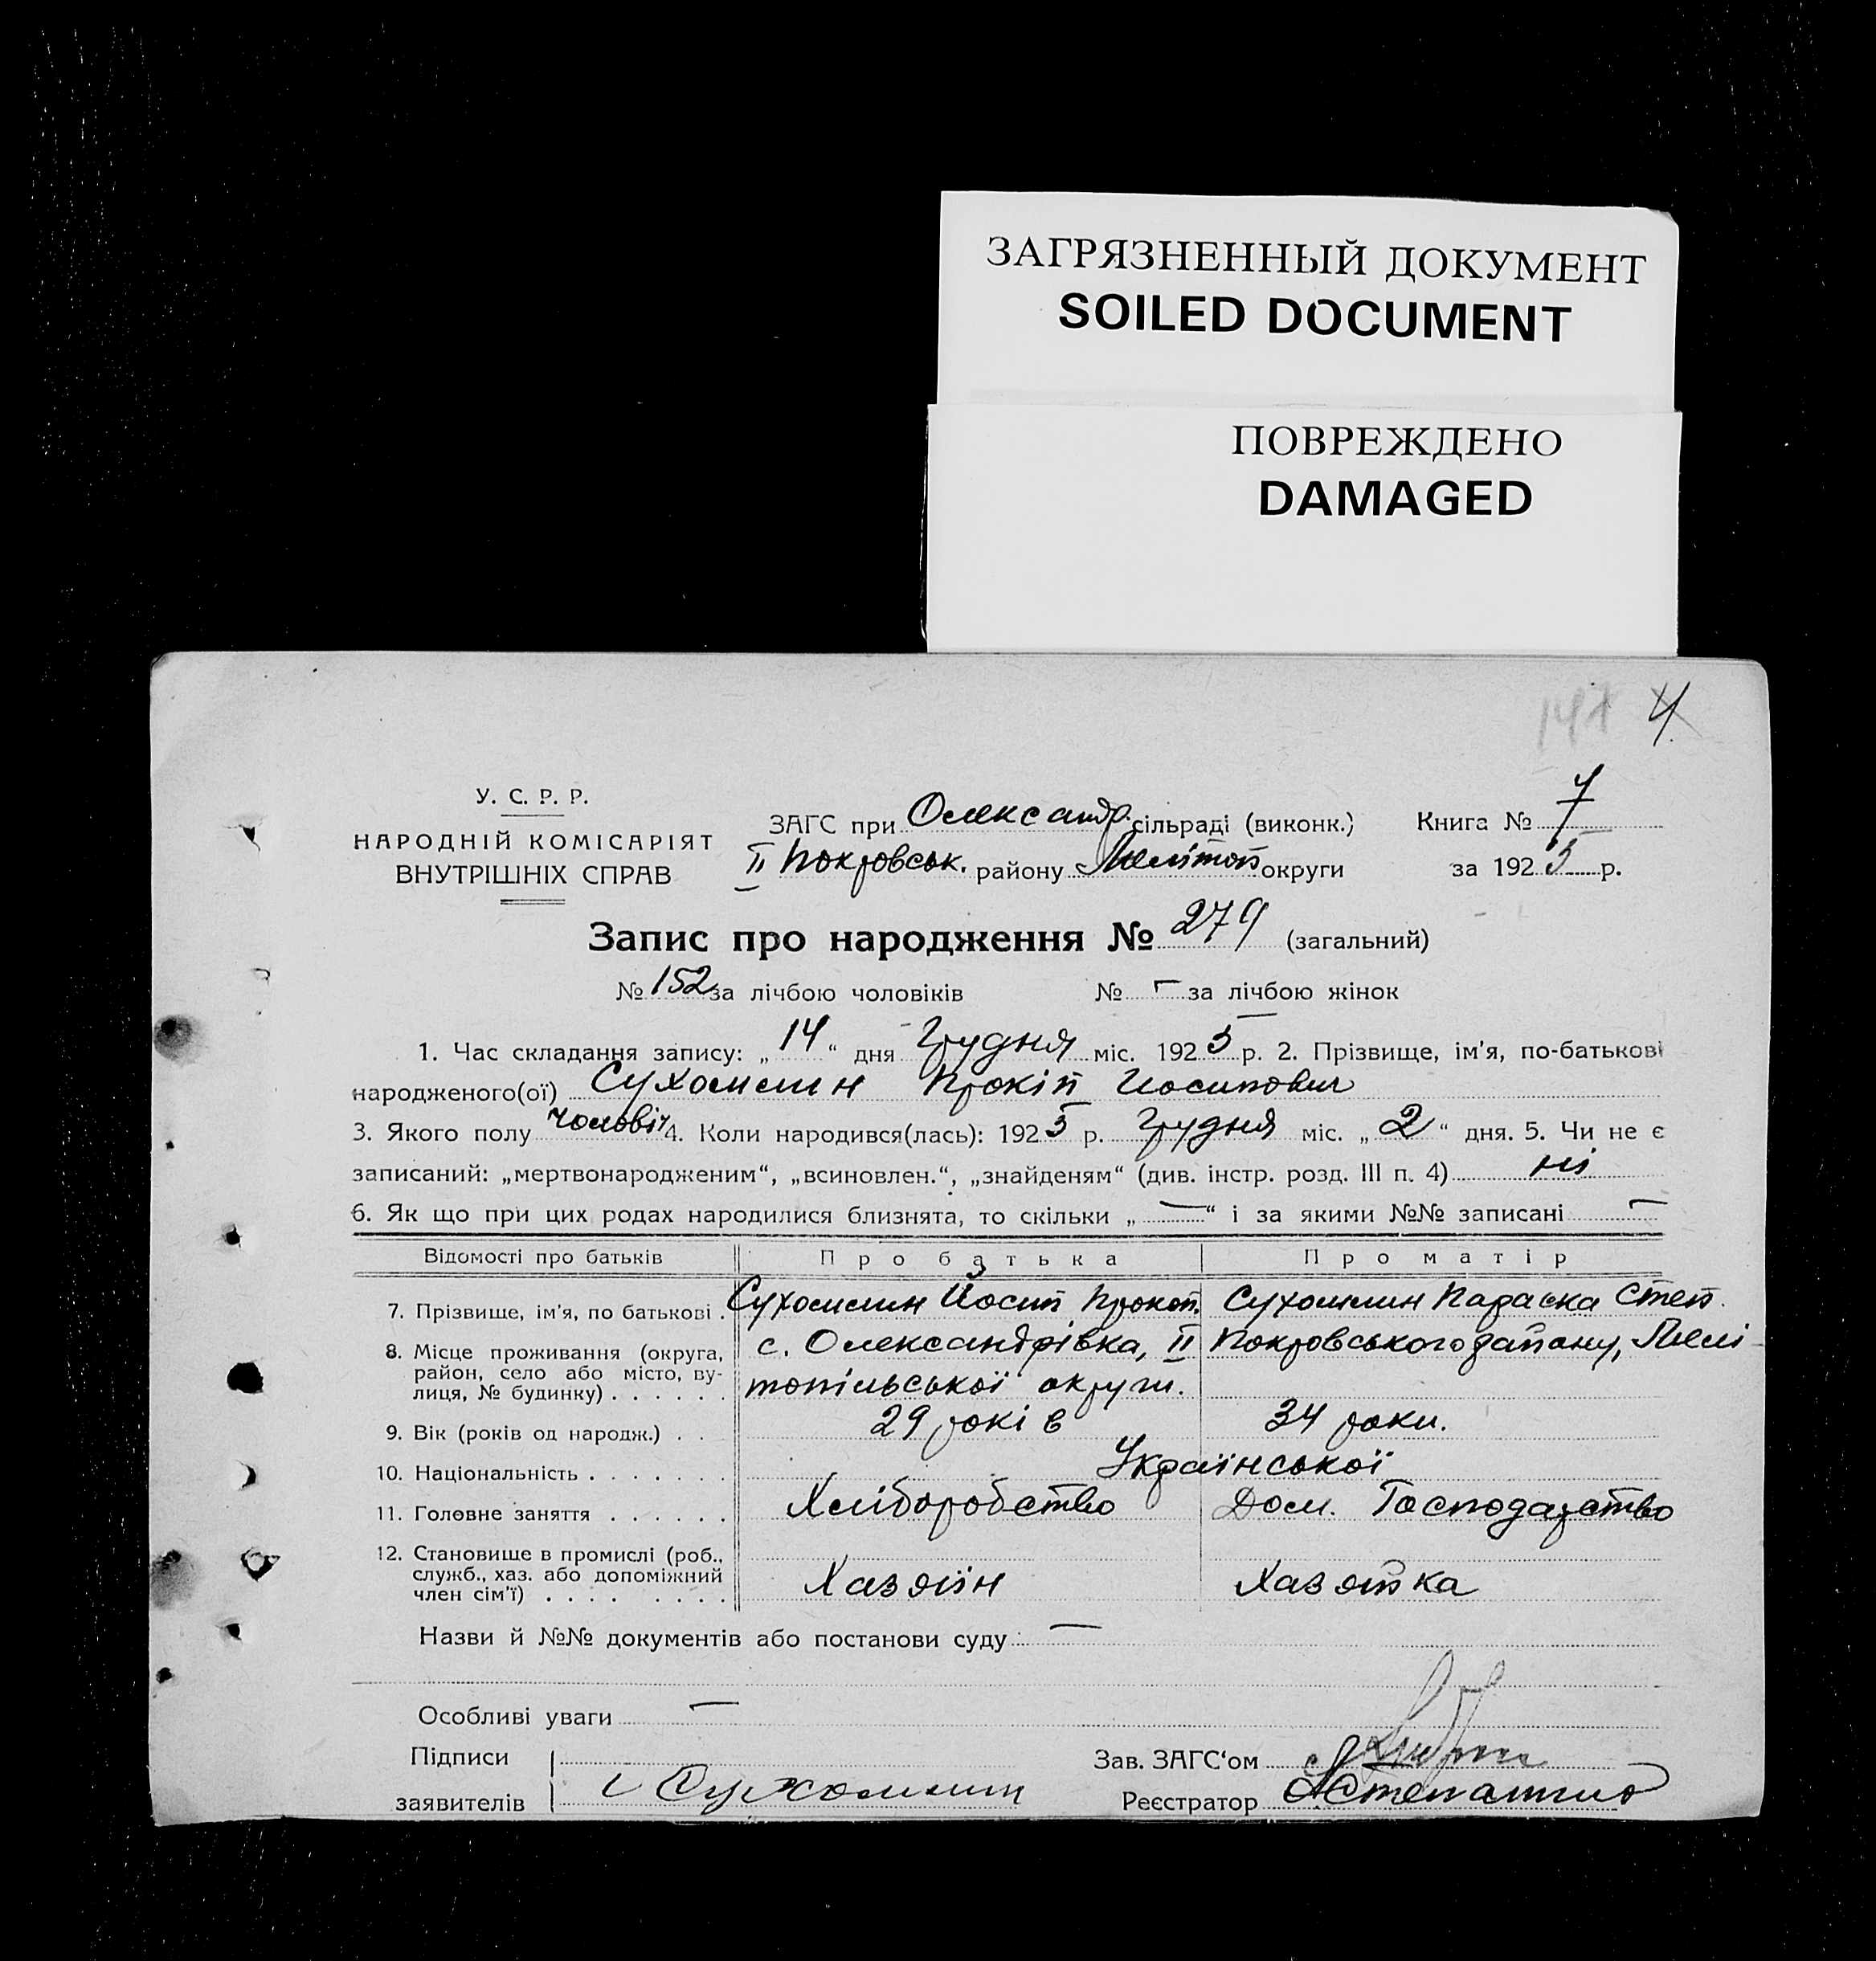 ЗАГРЯЗНЕННЫЙ ДОКУМЕНТ
SOILED DOCUMENT
ПОВРЕЖДЕНО
DAMAGED
141 4
У. С. Р. Р.
НАРОДНІЙ КОМІСАРІЯТ
ВНУТРІШНІХ СПРАВ
ЗАГС при Олександр. сільраді (виконк.) Книга № 7
ІІ Покровськ. району Меліт оп округи за 1925 р.
Запис про народження № 279 (загальний)
№ 152 за лічбою чоловіків № — за лічбою жінок
1. Час складання запису: „14“ дня Грудня міс. 1925 р. 2. Прізвище, ім’я, по-батькові
народженого(ої) Сухомлин Прокіп Иосипович
3. Якого полу чоловіч 4. Коли народився(лась): 1925 р. Грудня міс. „2“ дня. 5. Чи не є
записаний: „мертвонародженим“, „всиновлен.“, „знайденям“ (див. інстр. розд. III п. 4) ні
6. Як що при цих родах народилися близнята, то скільки „—“ і за якими №№ записані —
Відомості про батьків Про батька Про матір
7. Прізвище, ім’я, по батькові . Сухомлин Йосип Прокоп. Сухомлин Параска Степ.
8. Місце проживання (округа, район, село або місто, вулиця, № будинку) . . . . . . с. Олександрівка, ІІ Покровського району, Мелі-
топільської округи.
9. Вік (років од народж.) . . 29 років 34 роки.
10. Національність . . . . . . . Української
11. Головне заняття . . . . . . Хліборобство Дом. Господарство
12. Становище в промислі (роб., служб., хаз. або допоміжний член сім’ї) . . . . . . . . Хазяїн Хазяйка
Назви й №№ документів або постанови суду —
Особливі уваги —
Підписи Зав. ЗАГС‘ом
заявителів Сухомлин Реєстратор